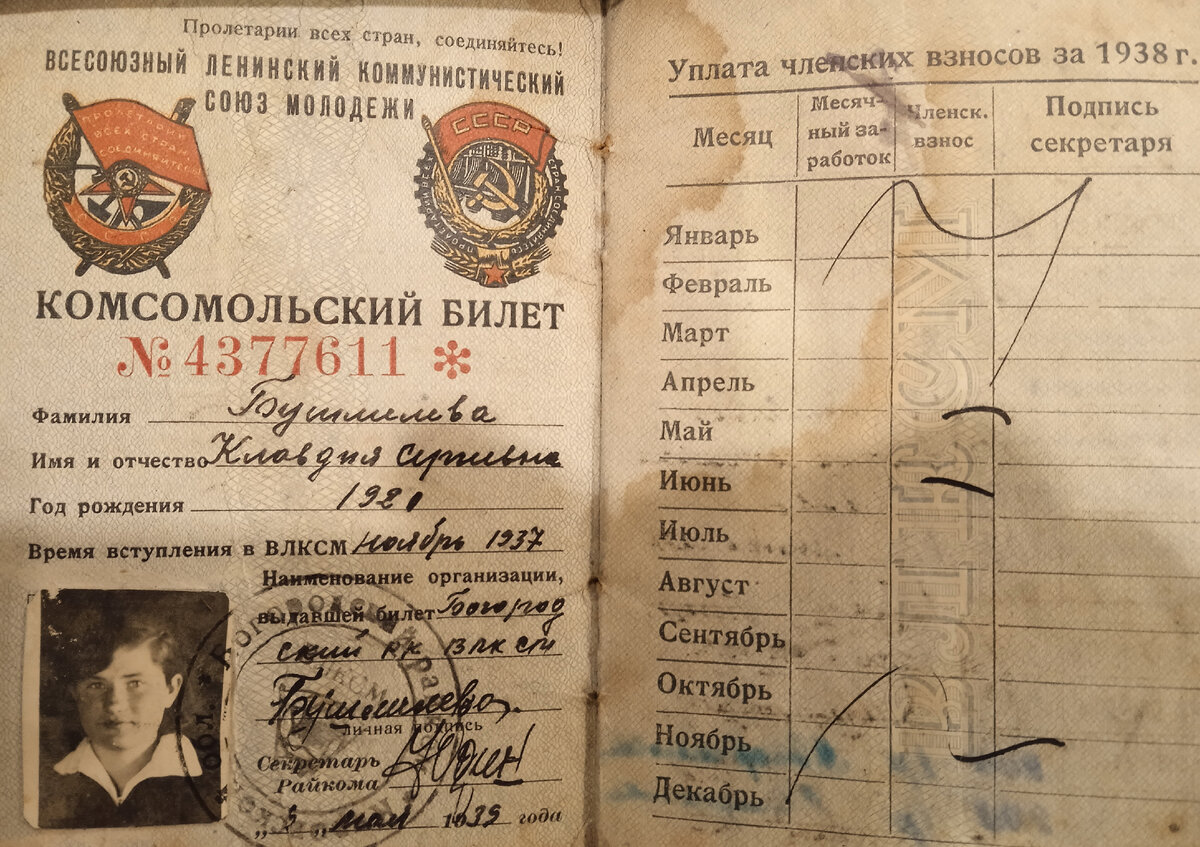 Пролетарии всех стран, соединяйтесь!
ВСЕСОЮЗНЫЙ ЛЕНИНСКИЙ КОММУНИСТИЧЕСКИЙ
СОЮЗ МОЛОДЕЖИ
ПРОЛЕТАРИИ
ВСЕХ СТРАН
СОЕДИНЯЙТЕСЬ
СССР
СССР
КОМСОМОЛЬСКИЙ БИЛЕТ
№ 4377611 *
Фамилия
Имя и отчество Клавдия
Год рождения 1920
Время вступления в ВЛКСМ Ноябрь 1937
Наименование организации,
выдавшей билет Богород
ский РК ВЛКСМ
личная подпись
Секретарь
Райкома Юдин
мая 1939 года
Уплата членских взносов за 1938 г.
Месяц
Месяч-
ный за-
работок
Членск.
взнос
Подпись
секретаря
Январь
Февраль
Март
Апрель
Май
Июнь
Июль
Август
Сентябрь
Октябрь
Ноябрь
Декабрь
ВЛКСМ